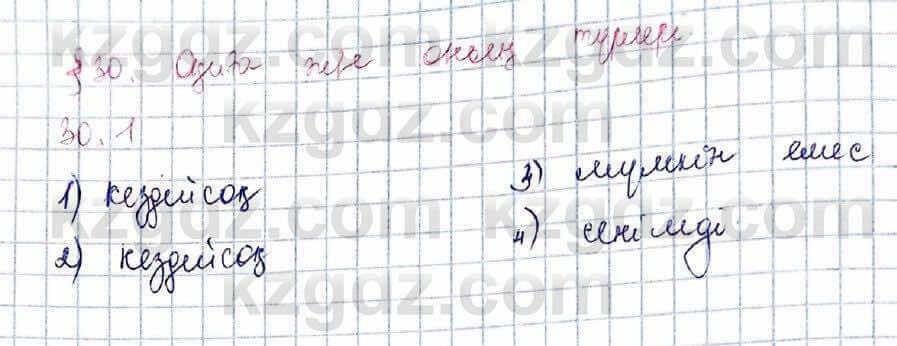 §30. Оқиға және оның түрлері
30.1
1) кездейсоқ
2) кездейсоқ
3) мүмкін емес
4) сенімді
kzgdz.com kzgdz.com
kzgdz.com
kzgdz.com kzgdz.com
kzgdz.com